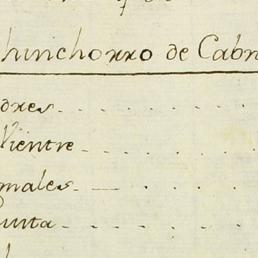 hinchorro de Cabr
dres
Vientre
males
Punta